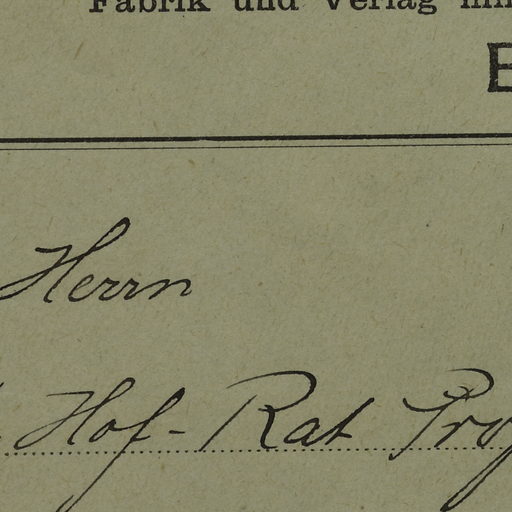 Fabrik und Verlag
Herrn
Hof-Rat